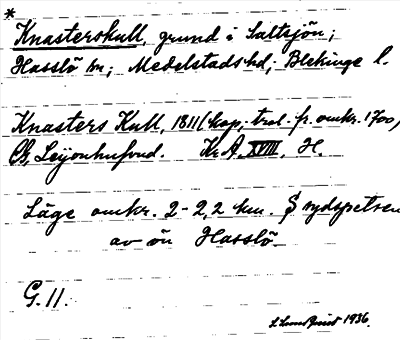 *
Knasterskull, grund i Saltsjön;
Hasslö sn; Medelstads hd; Blekinge l.
Knasters Kull, 1811 (kop; trol. fr. omkr. 1700,
Ch. Leijonhufvud. Kr. A. XVIII, H.
Läge omkr. 2-2,2 km. S sydspetsen
av ön Hasslö.
G. 11.
1936.